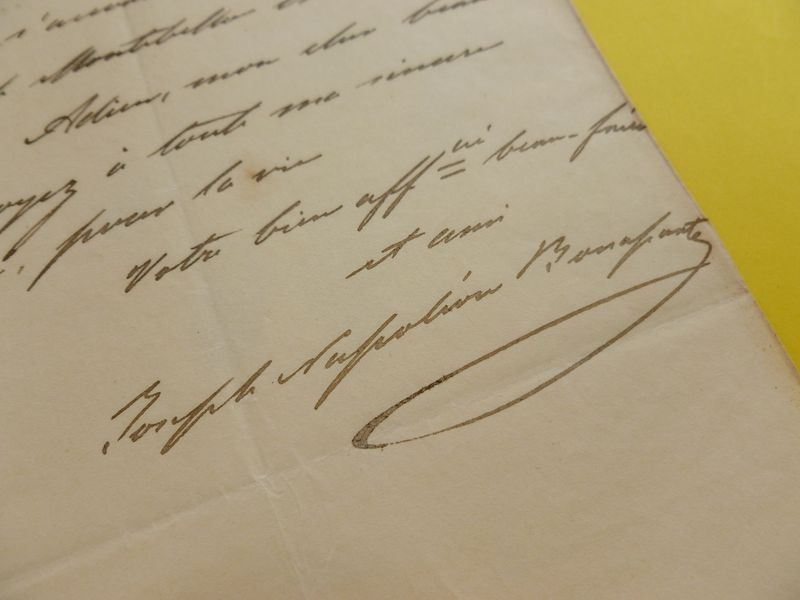 Montebello
Adieu, mon cher beau
à toute ma sincere
, pour la vie
Votre bien affné beau-frère
et ami
Joseph Napoléon Bonaparte